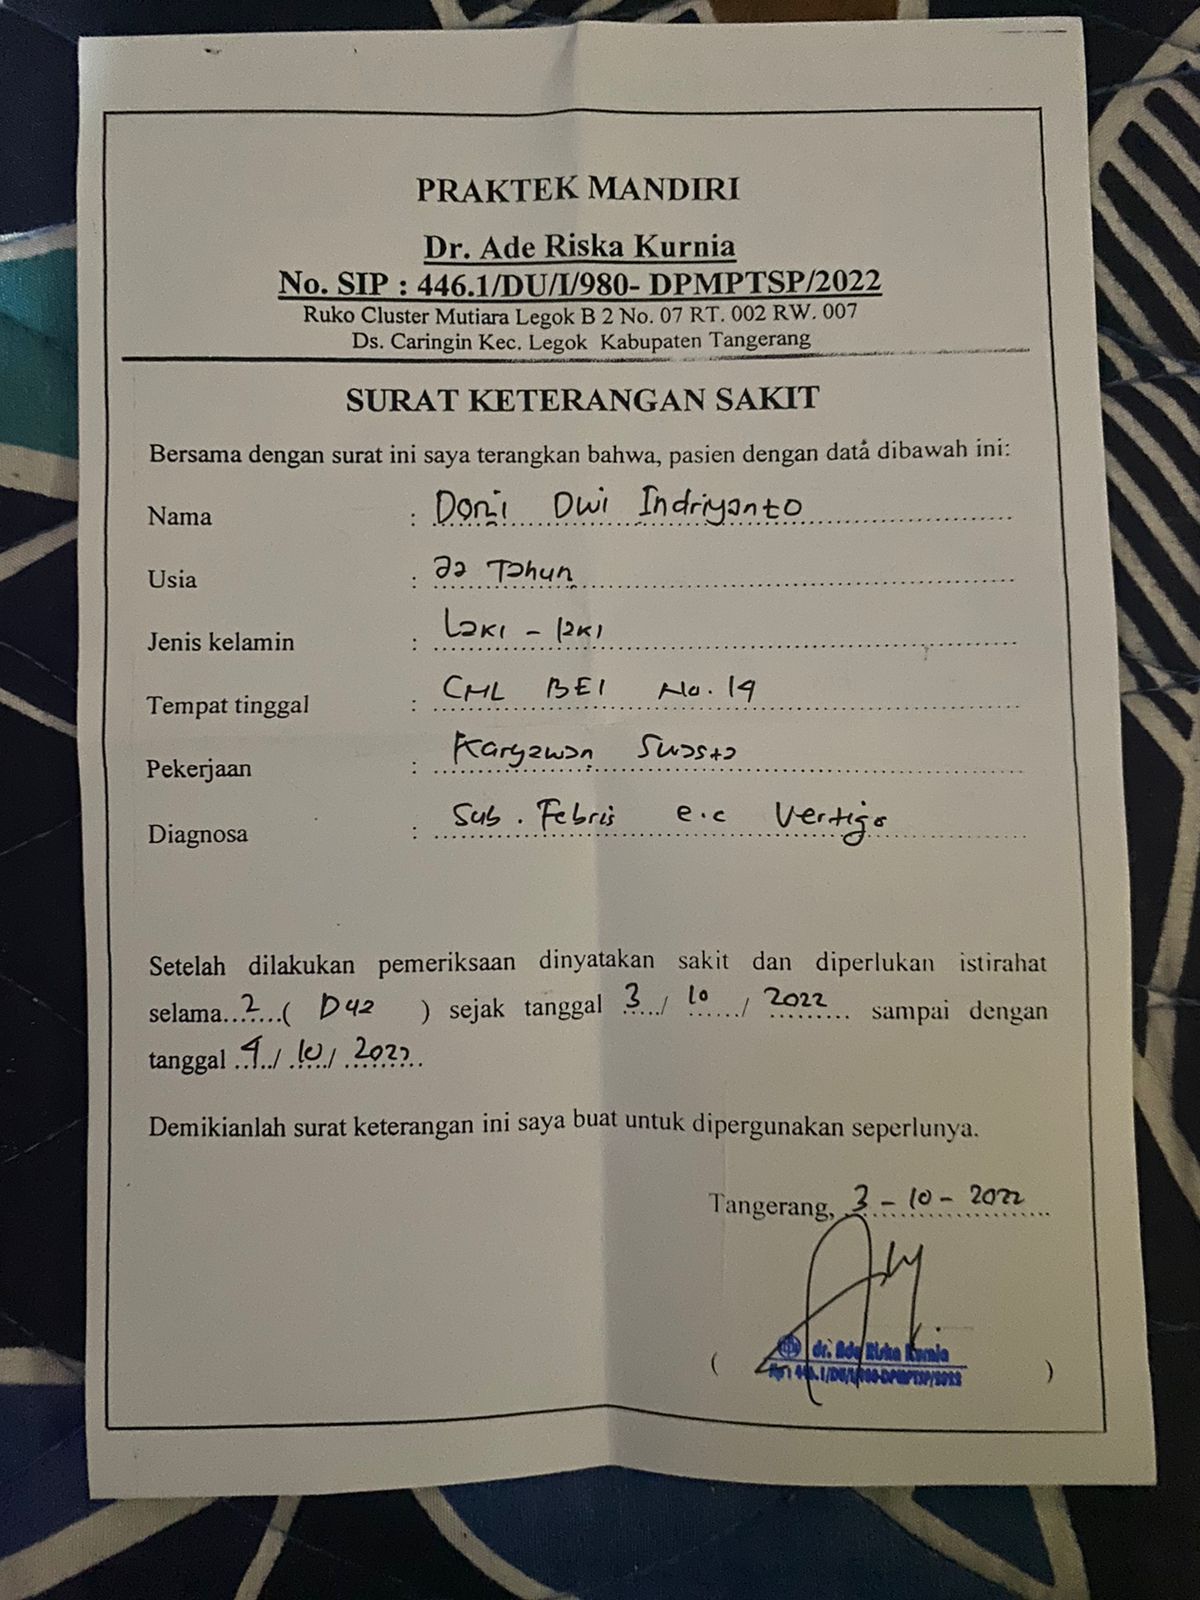 PRAKTEK MANDIRI
Dr. Ade Riska Kurnia
No. SIP : 446.1/DU/I/980- DPMPTSP/2022
Ruko Cluster Mutiara Legok B 2 No. 07 RT. 002 RW. 007
Ds. Caringin Kec. Legok Kabupaten Tangerang
SURAT KETERANGAN SAKIT
Bersama dengan surat ini saya terangkan bahwa, pasien dengan data dibawah ini:
Nama : Doni Dwi Indriyanto
Usia : Tahun
Jenis kelamin : Laki - laki
Tempat tinggal : CML BEI No. 19
Pekerjaan : Karyawan Swasta
Diagnosa : Sub. Febris e.c Vertigo
Setelah dilakukan pemeriksaan dinyatakan sakit dan diperlukan istirahat
selama 2 ( Dua ) sejak tanggal 3 / 10 / 2022 sampai dengan
tanggal 4 / 10 / 2022
Demikianlah surat keterangan ini saya buat untuk dipergunakan seperlunya.
Tangerang, 3 - 10 - 2022
( dr. Ade Riska Kurnia )
446.1/DU/I/980-DPMPTSP/2022